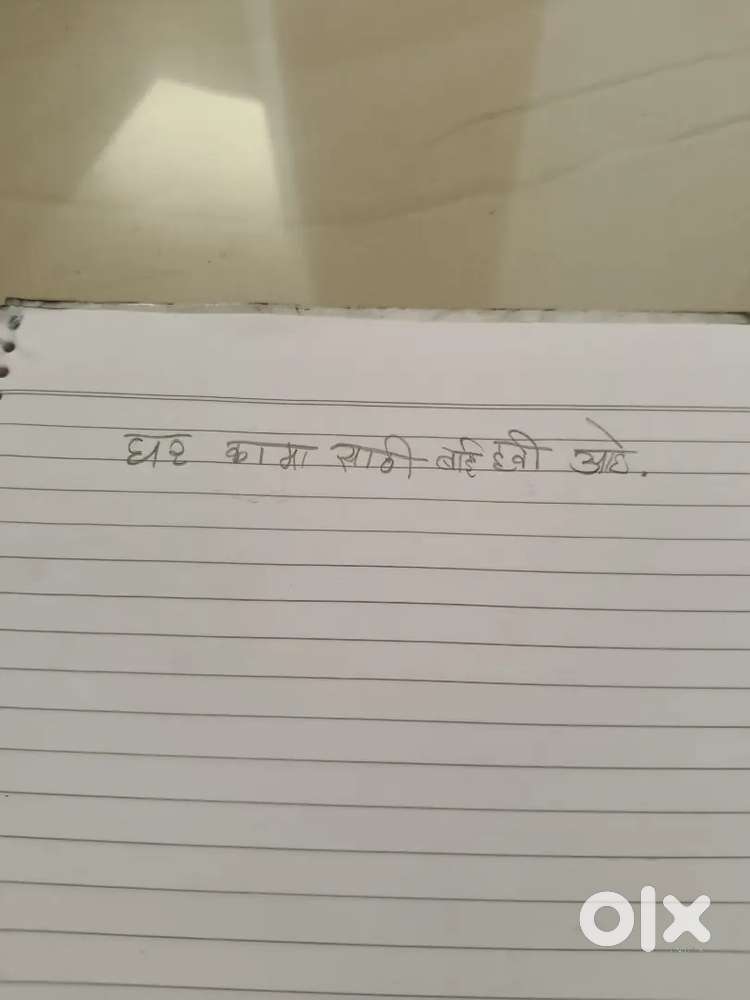 घर कामा साठी बाई हवी आहे.
olx